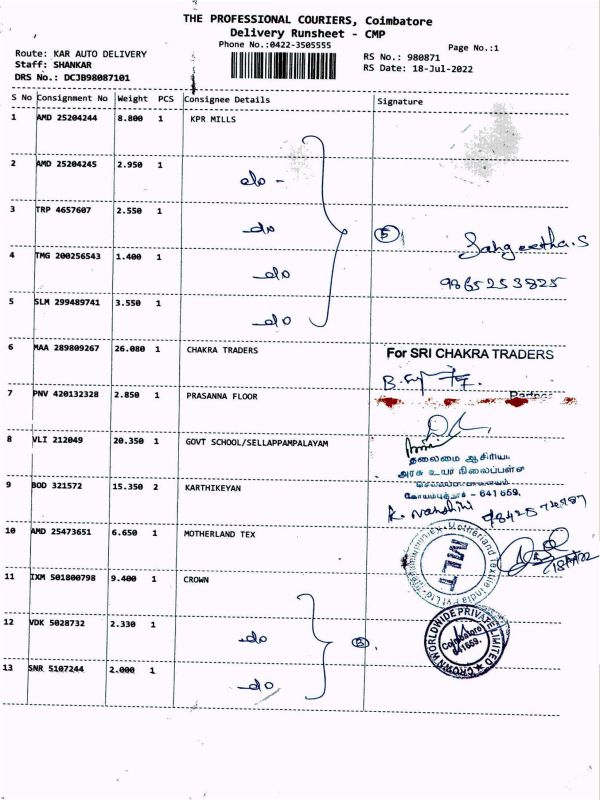 THE PROFESSIONAL COURIERS, Coimbatore
Delivery Runsheet - CMP
Phone No.:0422-3505555
Page No.:1
Route: KAR AUTO DELIVERY
Staff: SHANKAR
DRS No.: DCJB98087101
RS No.: 980871
RS Date: 18-Jul-2022
S No Consignment No Weight PCS Consignee Details Signature
1 AMD 25204244 8.800 1 KPR MILLS
2 AMD 25204245 2.950 1 do -
3 TRP 4657607 2.550 1 do
4 TMG 200256543 1.400 1 do
5 SLM 299489741 3.550 1 do
5
Sangeetha.S
9865253825
6 MAA 289809267 26.080 1 CHAKRA TRADERS
For SRI CHAKRA TRADERS
7 PNV 420132328 2.850 1 PRASANNA FLOOR
8 VLI 212049 20.350 1 GOVT SCHOOL/SELLAPPAMPALAYAM
தலைமை ஆசிரியை
கோயம்புத்தூர் - 641 659.
9 BOD 321572 15.350 2 KARTHIKEYAN
10 AMD 25473651 6.650 1 MOTHERLAND TEX
MLT
11 IXM 501800798 9.400 1 CROWN
12 VDK 5028732 2.330 1 do
13 SNR 5107244 2.000 1 do
3
CROWN WORLDWIDE PRIVATE LIMITED
Coimbatore
641659.